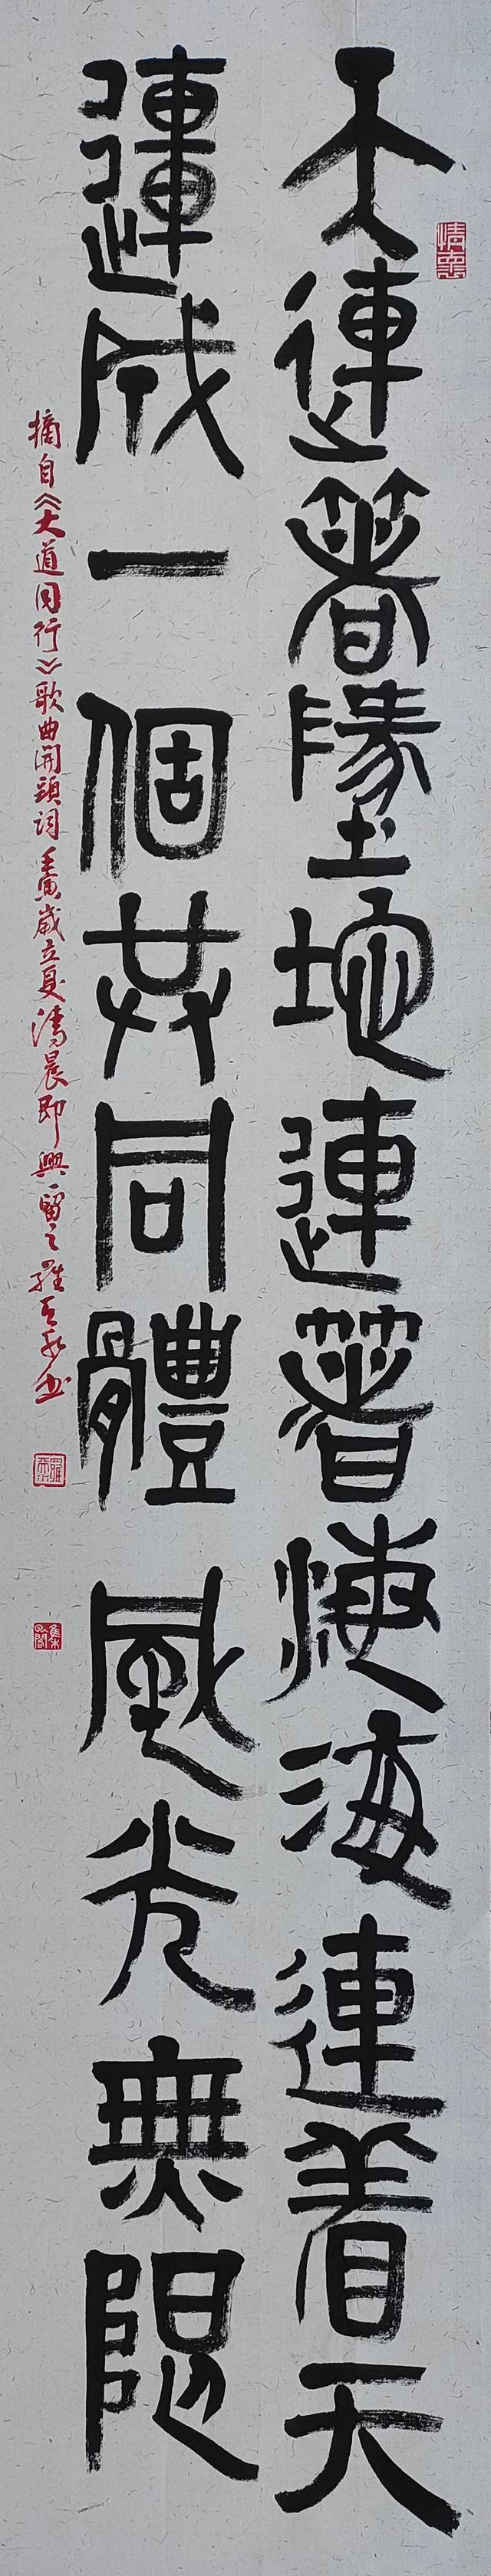 天連著墬地連著海海連着天
連成一個共同體 風光無限
摘自《大道同行》歌曲開頭詞 壬寅歲立夏清晨即興留之 羅